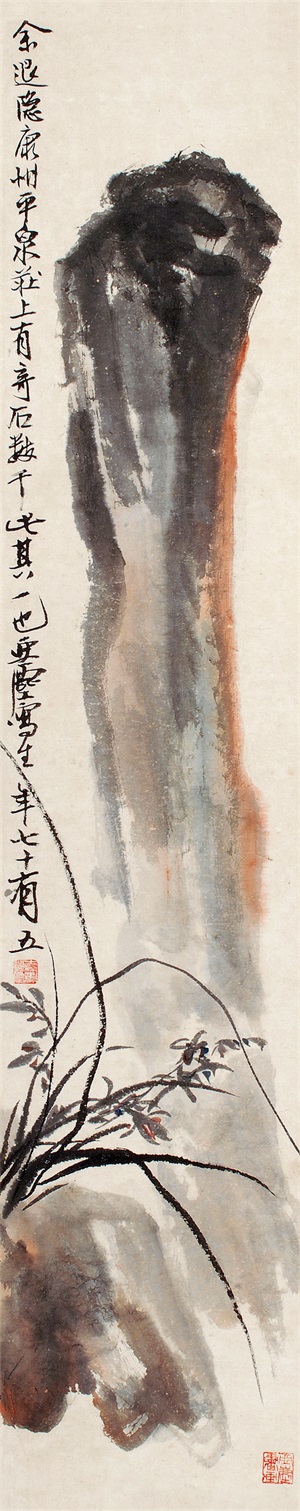 余退隐康州平泉莊上有奇石數千此其一也垂罋寫生年七十有五